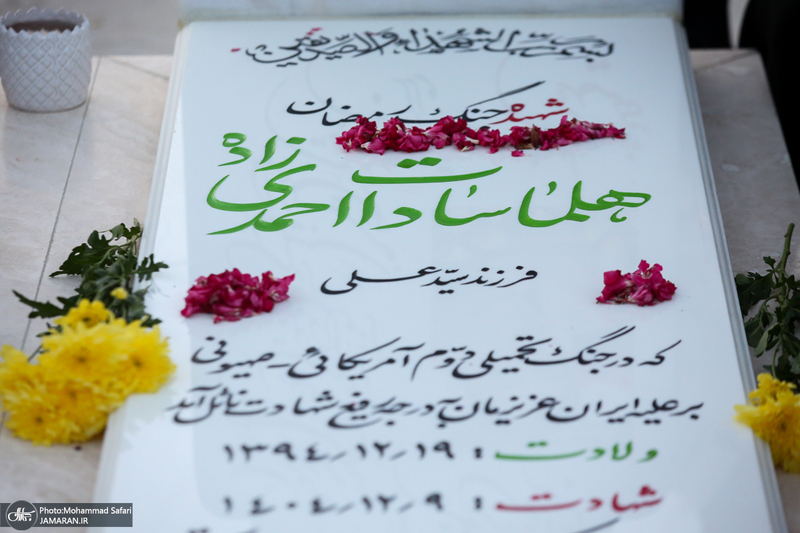 بسم رب الشهداء والصدیقین
شهیده جنگ رمضان
هلنا سادات احمدی زاده
فرزند سیّد علی
که در جنگ تحمیلی دوّم آمریکائی - صهیونی
بر علیه ایران عزیزمان به درجه رفیع شهادت نائل آمد
ولادت : ۱۳۹۴٫۱۲٫۱۹
شهادت : ۱۴۰۴٫۱۲٫۹
Photo:Mohammad Safari
JAMARAN.IR